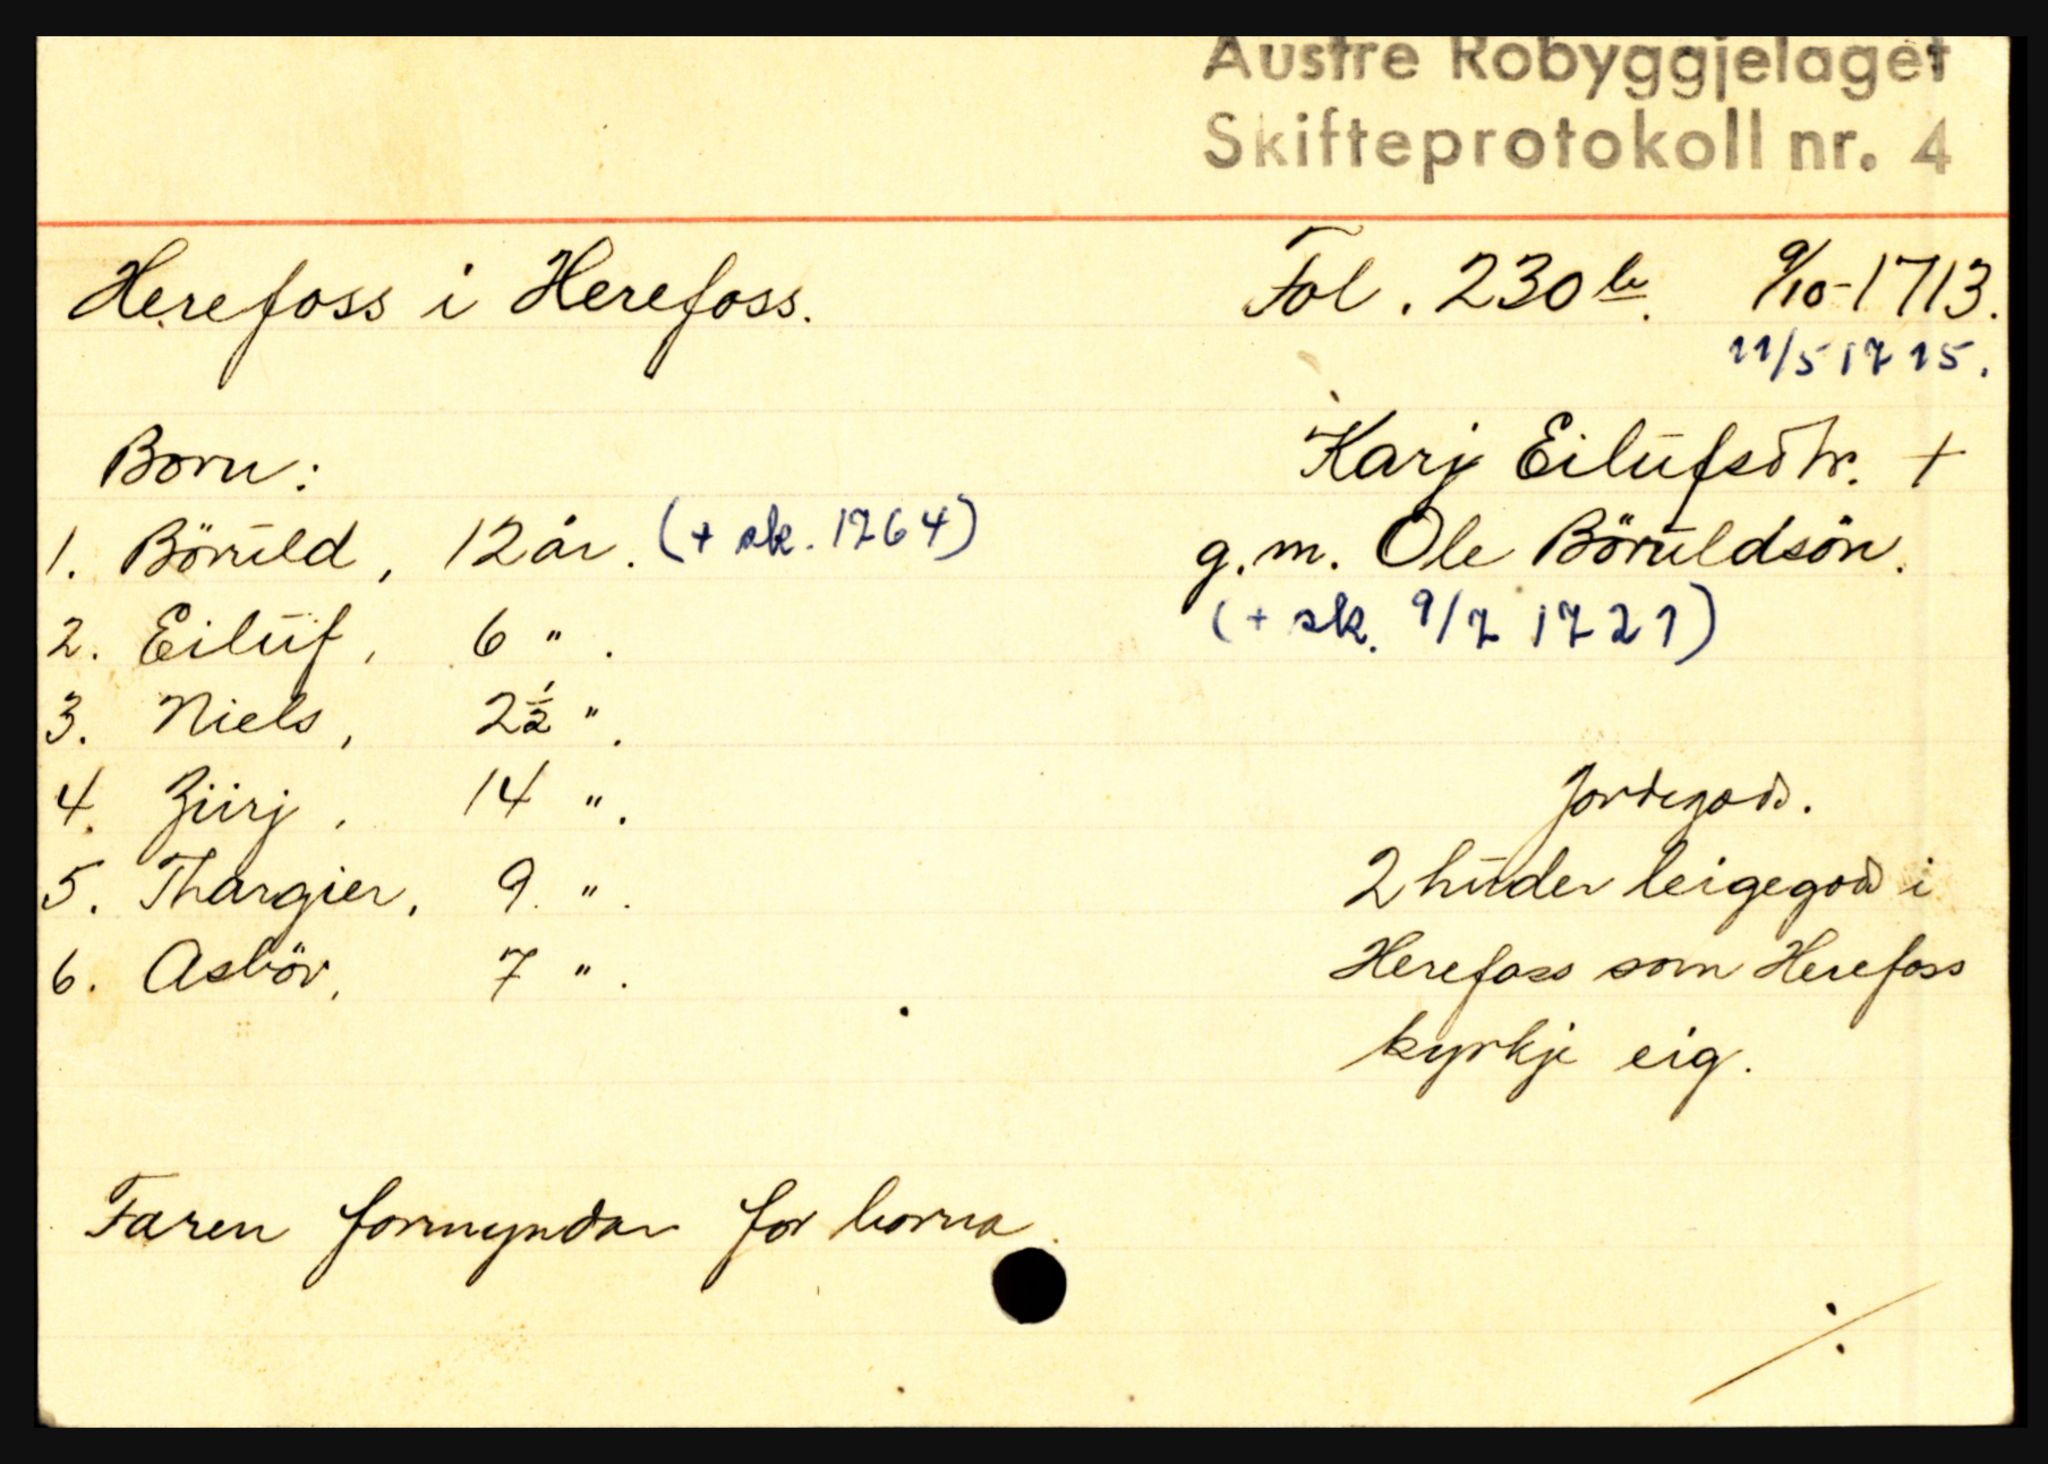 Austre Robyggjelaget
Skifteprotokoll nr. 4
Herefoss i Herefoss.
Fol. 230 b. 9/10-1713.
11/5 1715.
Karj Eilufsdtr. +
g.m. Ole Böruldsön.
(+ sk. 9/7 1721)
Born:
1. Böruld, 12 år. (+ sk. 1764)
2. Eiluf, 6 ".
3. Niels, 2½ ".
4. Ziirj, 14 ".
5. Thargier, 9 ".
6. Asbör, 7 ".
Jordegods.
2 huder leigegods i
Herefoss som Herefoss
kyrkje eig.
Faren formyndar for borna.